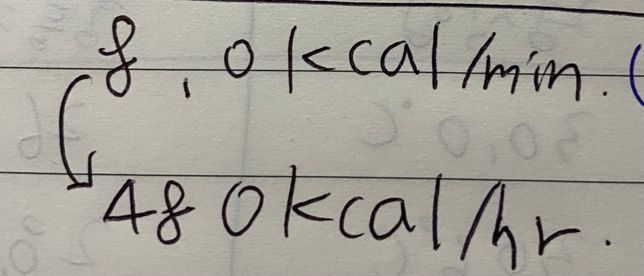 8.0kcal/min. (
480kcal/hr.